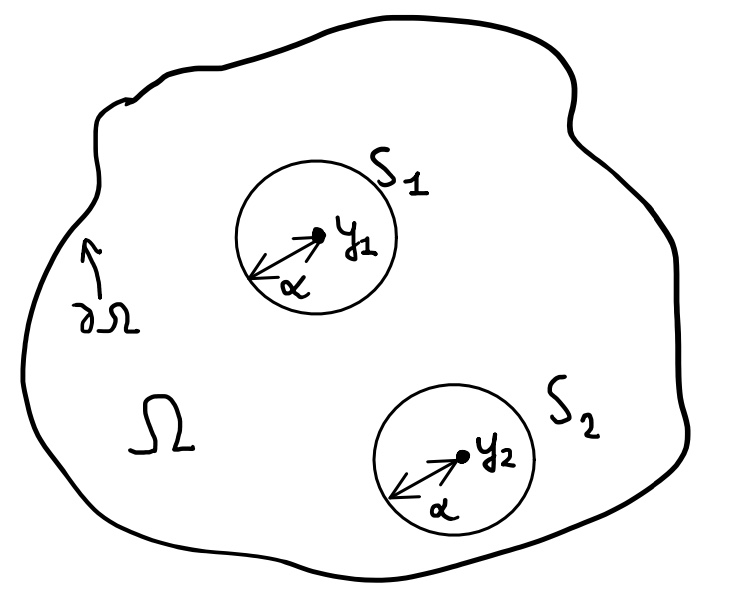 S₁
y₁
α
∂Ω
Ω
S₂
y₂
α